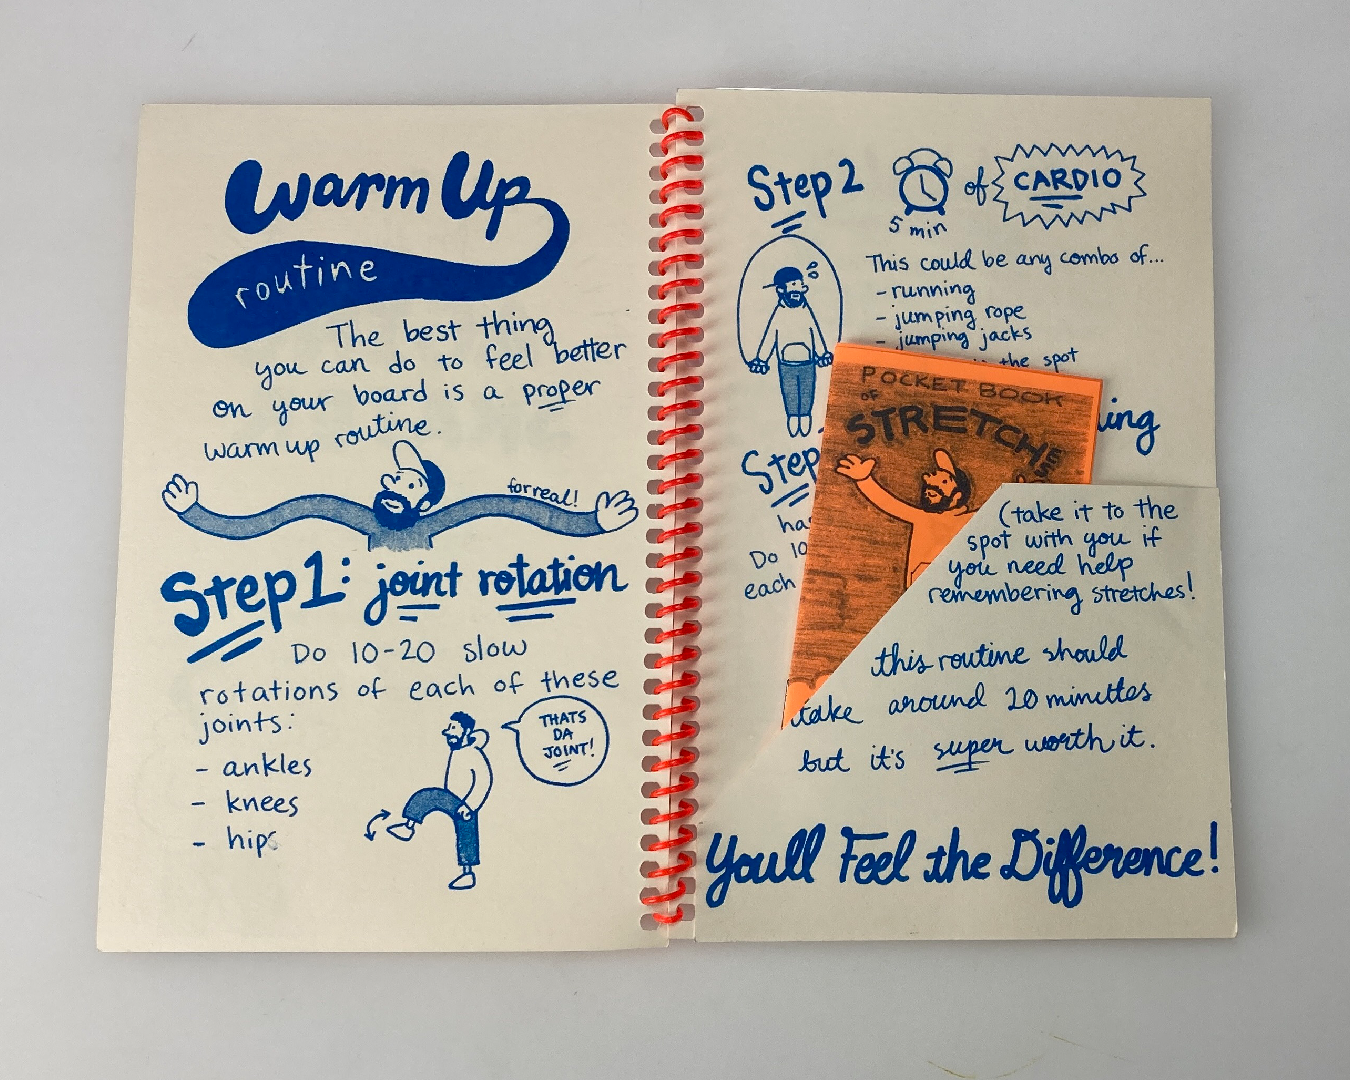 Warm Up
routine
The best thing
you can do to feel better
on your board is a proper
warm up routine.
for real!
Step 1: joint rotation
Do 10-20 slow
rotations of each of these
joints:
- ankles
- knees
- hips
THATS
DA
JOINT!
Step 2
5 min
of CARDIO
This could be any combo of...
- running
- jumping rope
- jumping jacks
the spot
Step
Do 10
each
POCKET BOOK
OF
STRETCHES
(take it to the
spot with you if
you need help
remembering stretches!
this routine should
take around 20 minutes
but it's super worth it.
You'll Feel the Difference!